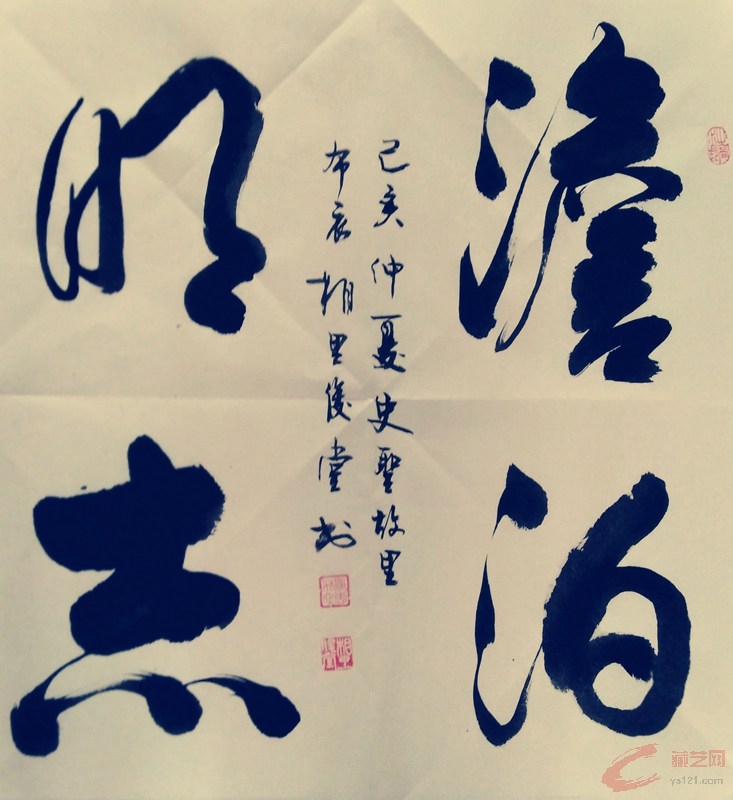 澹泊
明志
己亥仲夏史聖故里
布衣相里俊堂书
藏艺网
ys121.com